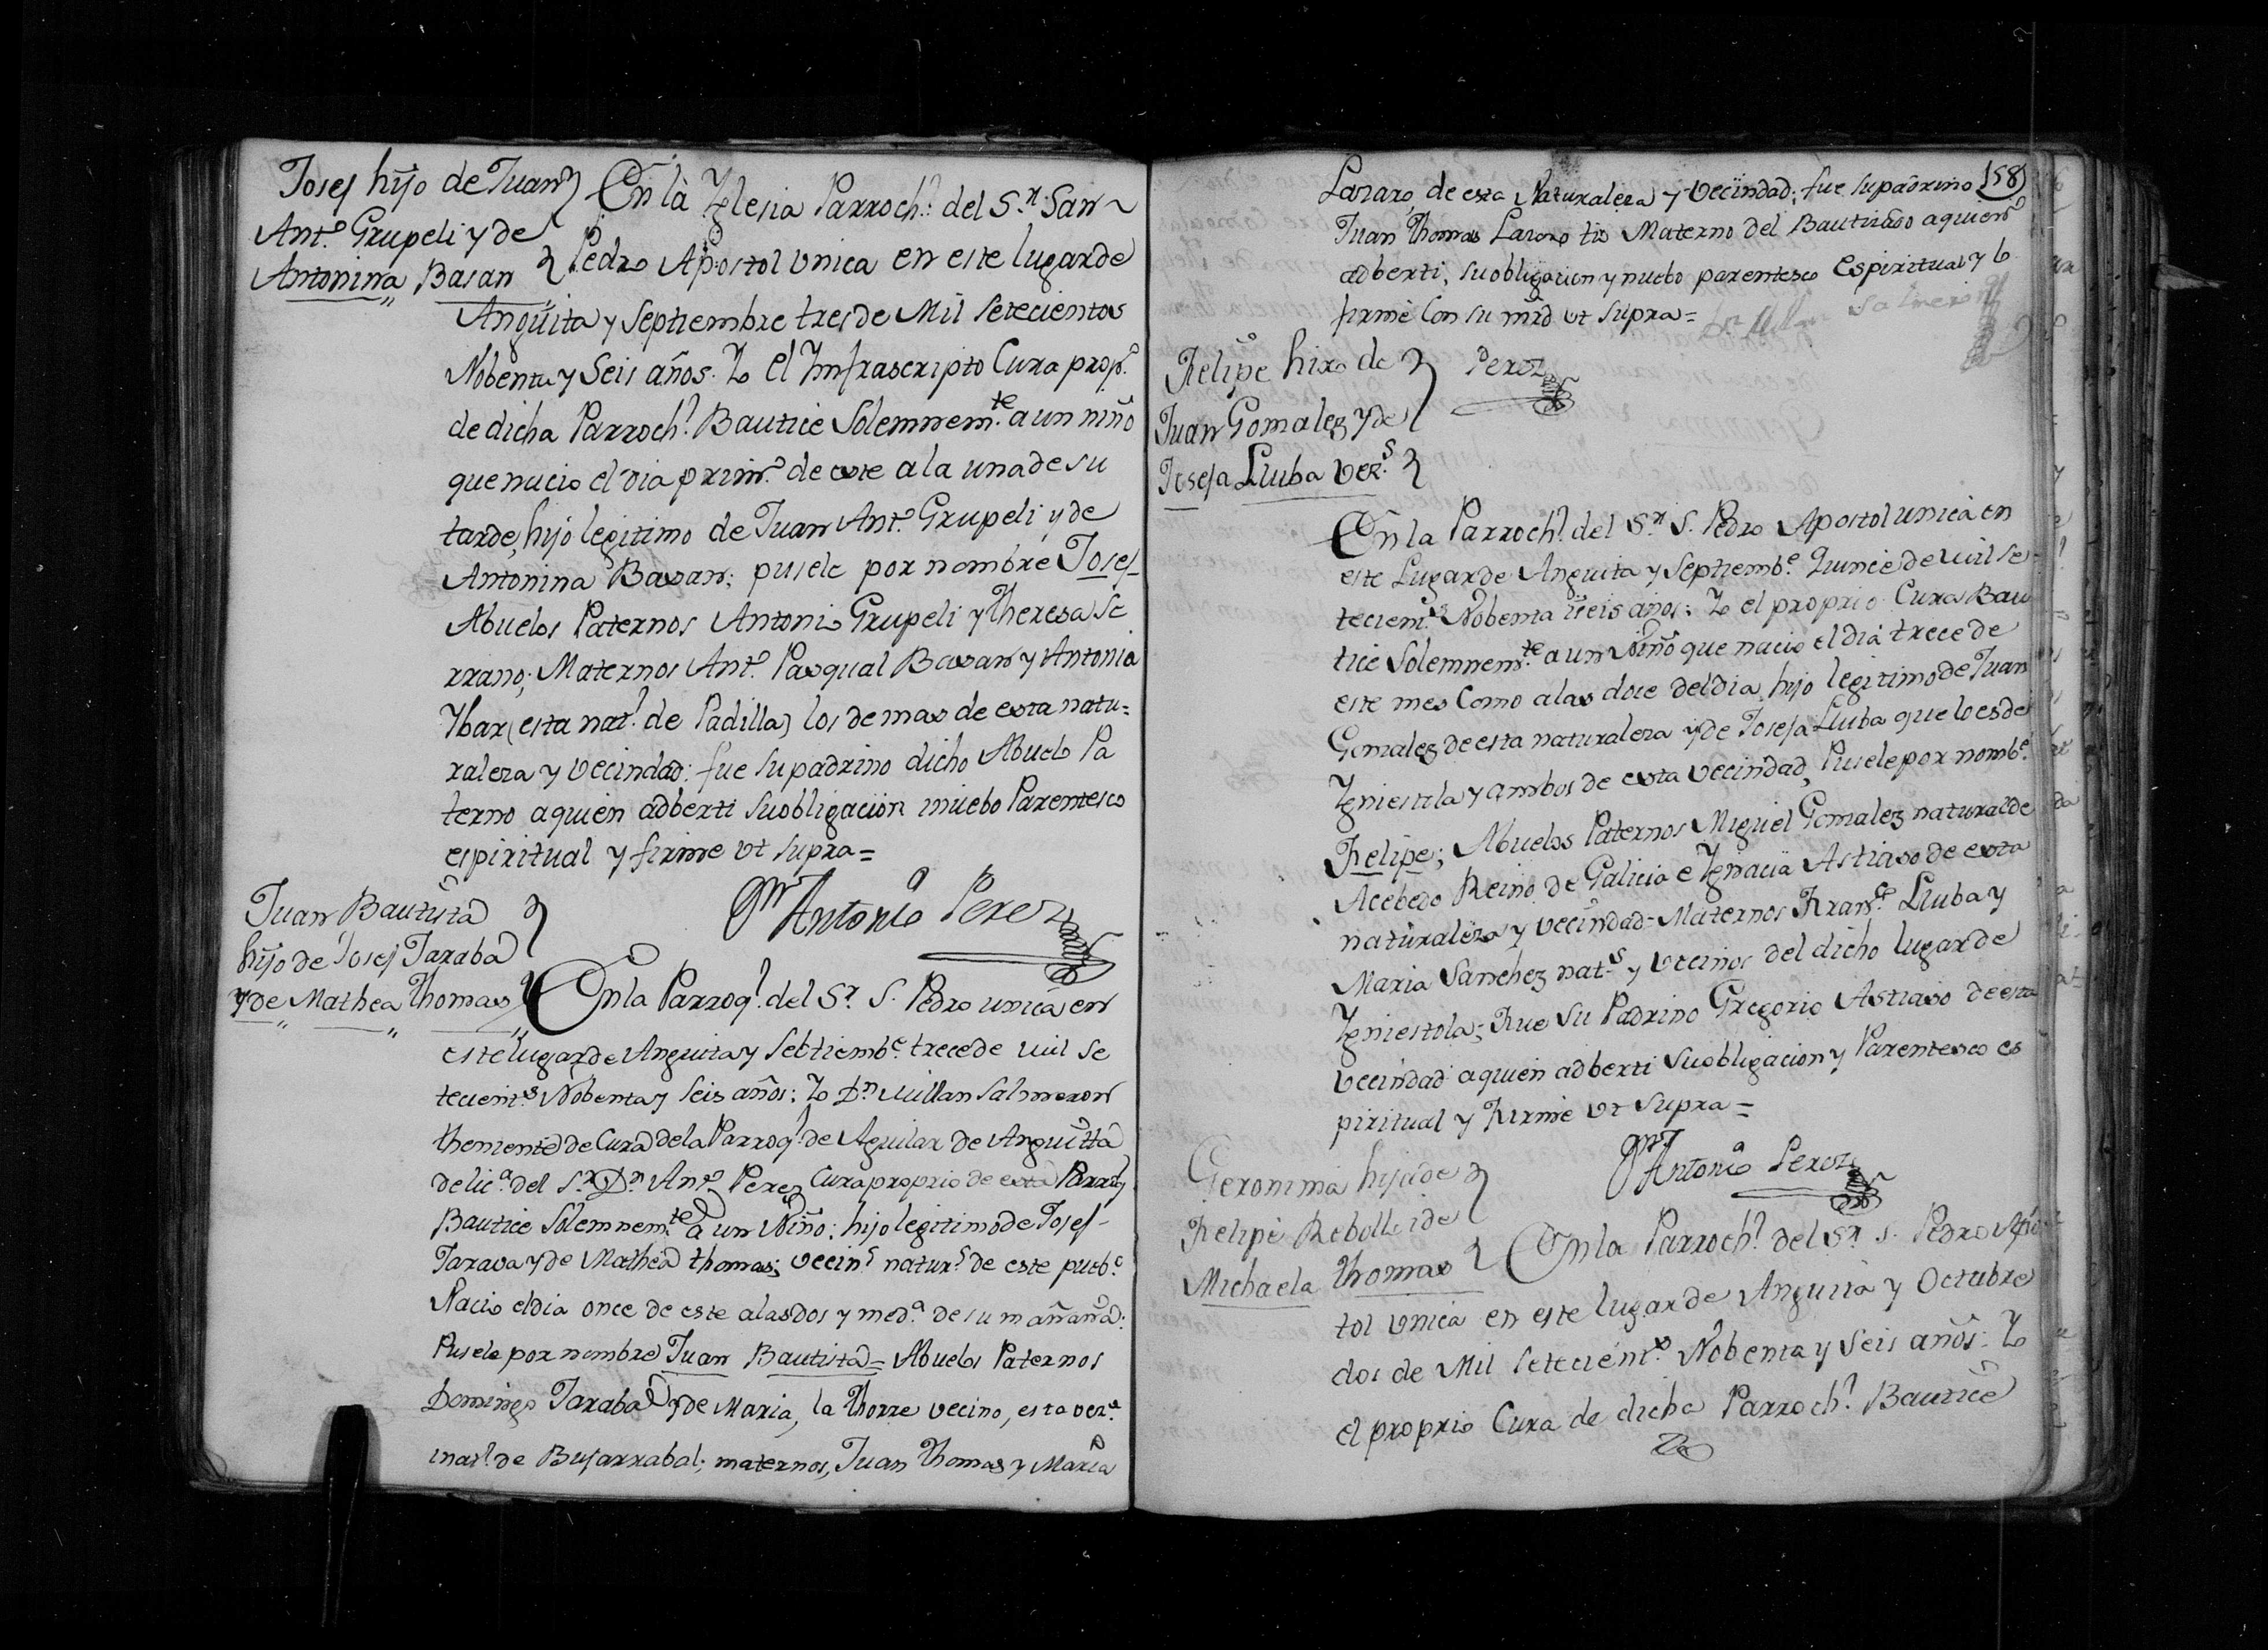 Josef hijo de Juan
Ant.º Grupeli y de
Antonina Basan
En la Yglesia Parroch.l del S.r San
Pedro Apostol vnica en este lugar de
Anguita y Septiembre tres de Mil Setecientos
Nobenta y Seis años. Yo el Ymfrascripto Cura prop.º
de dicha Parroch.l Bautice Solemnem.te a un niño
que nacio el dia prim.º de este a la una de su
tarde, hijo legitimo de Juan Ant.º Grupeli y de
Antonina Basan; pusele por nombre Josef
Abuelos Paternos Antonio Grupeli y Theresa Se
rrano; Maternos Ant.º Pasqual Basan y Antonia
Ybar (esta nat.l de Padilla) los demas de esta natu=
raleza y vecindad: fue su padrino dicho Abuelo Pa
terno a quien adberti su obligacion i nuebo Parentesco
espiritual y firme vt supra=
Antonio Perez
Juan Bautista
hijo de Josef Taraba
y de Mathea Thomas
En la Parroq.l del S.r S. Pedro unica en
este lugar de Anguita y Sebtiemb.e trece de mil Se
tecient.s Nobenta y Seis años: Yo D.n Millan Salmeron
theniente de Cura de la Parroq.l de Aguilar de Anguitta
de lic.a del S.r D.n Ant.º Perez Cura proprio de esta Parroq.l
Bautice Solemnem.te a un Niño: hijo legitimo de Josef
Tarava y de Mathea thomas; vecin.s natur.s de este pueb.º
Nacio el dia once de este a las dos y med.a de su mañana:
Pusele por nombre Juan Bautista= Abuelos Paternos
Domingo Taraba y de Maria, la Thorre vecino, esta vez.a
i nat.l de Bujarrabal; maternos, Juan Thomas y Maria
158
Lazaro, de esta Naturaleza y vecindad; fue su padrino
Juan Thomas Lazaro tio Materno del Bautizado a quien
adberti, su obligacion y nuebo parentesco Espiritual y lo
firme Con su mrd vt supra= D.n Millan Salmeron
Perez
Felipe hixo de
Juan Gomalez y de
Josefa Lluba vez.s
En la Parroch.l del S.r S. Pedro Apostol unica en
este Lugar de Anguita y Septiemb.e Quince de mil se
tecien.s Nobenta i seis años: Yo el proprio Cura Bau
tice Solemnem.te a un Niño que nacio el dia trece de
este mes Como a las doce del dia, hijo legitimo de Juan
Gomalez de esta naturaleza y de Josefa Lluba que lo es de
Yniestola y ambos de esta vecindad, Pusele por nomb.e
Felipe; Abuelos Paternos Miguel Gomalez natural de
Acebedo Reino de Galicia e Ygnacia Astiaso de esta
naturaleza y vecindad= Maternos Fran.co Lluba y
Maria Sanchez nat.s y vecinos del dicho lugar de
Yniestola; Fue Su Padrino Gregorio Astiaso de esta
vecindad a quien adberti su obligacion y Parentesco es
piritual y Firme vt supra=
Antonio Perez
Geronima hija de
Felipe Rebollo i de
Michaela Thomas
En la Parroch.l del S.r S. Pedro Apos
tol vnica en este lugar de Anguita y Octubre
dos de Mil Setecient.s Nobenta y Seis años: Yo
el proprio Cura de dicha Parroch.l Bautice